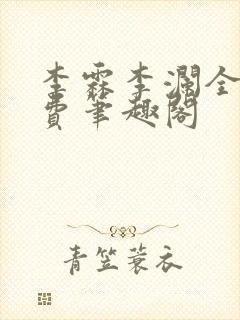 李霖李澜全
费笔趣阁
青笠蓑衣